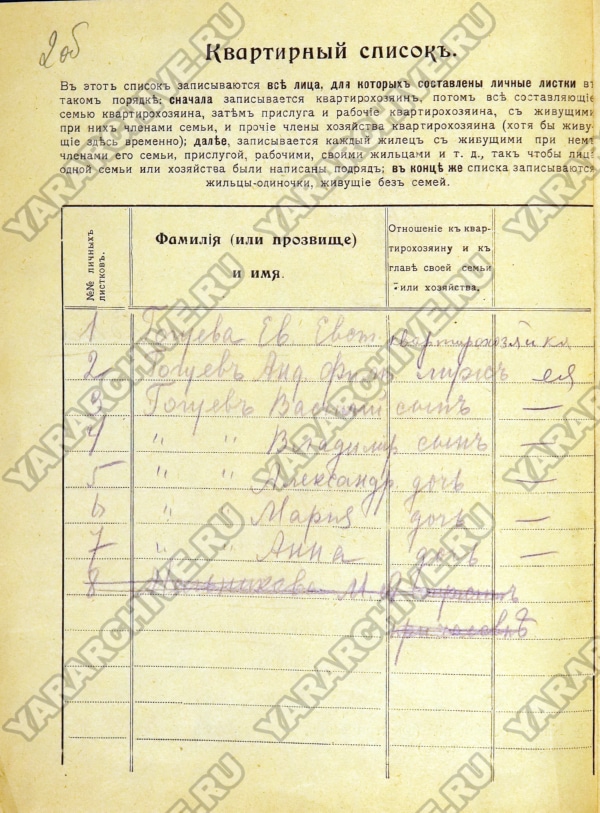 2об
Квартирный списокъ.
Въ этотъ список записываются всѣ лица, для которыхъ составлены личные листки въ
такомъ порядкѣ: сначала записывается квартирохозяинъ, потомъ всѣ составляющіе
семью квартирохозяина, затѣмъ прислуга и рабочіе квартирохозяина, съ живущими
при нихъ членами семьи, и прочіе члены хозяйства квартирохозяина (хотя бы живу-
щіе здѣсь временно); далѣе, записывается каждый жилецъ съ живущими при немъ
членами его семьи, прислугой, рабочими, своими жильцами и т. д., такъ чтобы лица
одной семьи или хозяйства были написаны подрядъ; въ концѣ же списка записываются
жильцы-одиночки, живущіе безъ семей.
№№ личныхъ листковъ.
Фамилія (или прозвище)
и имя.
Отношеніе къ квар-
тирохозяину и къ
главѣ своей семьи
или хозяйства.
1 Гогуева Ев Евст. квартирохозяйка
2 Гогуевъ Анд ея
3 Гогуевъ Василий сынъ —
4 " " Владимир сынъ —
5 " " Александр дочь —
6 " Мария дочь —
7 " " Анна дочь —
8
YARARCHIVE.RU